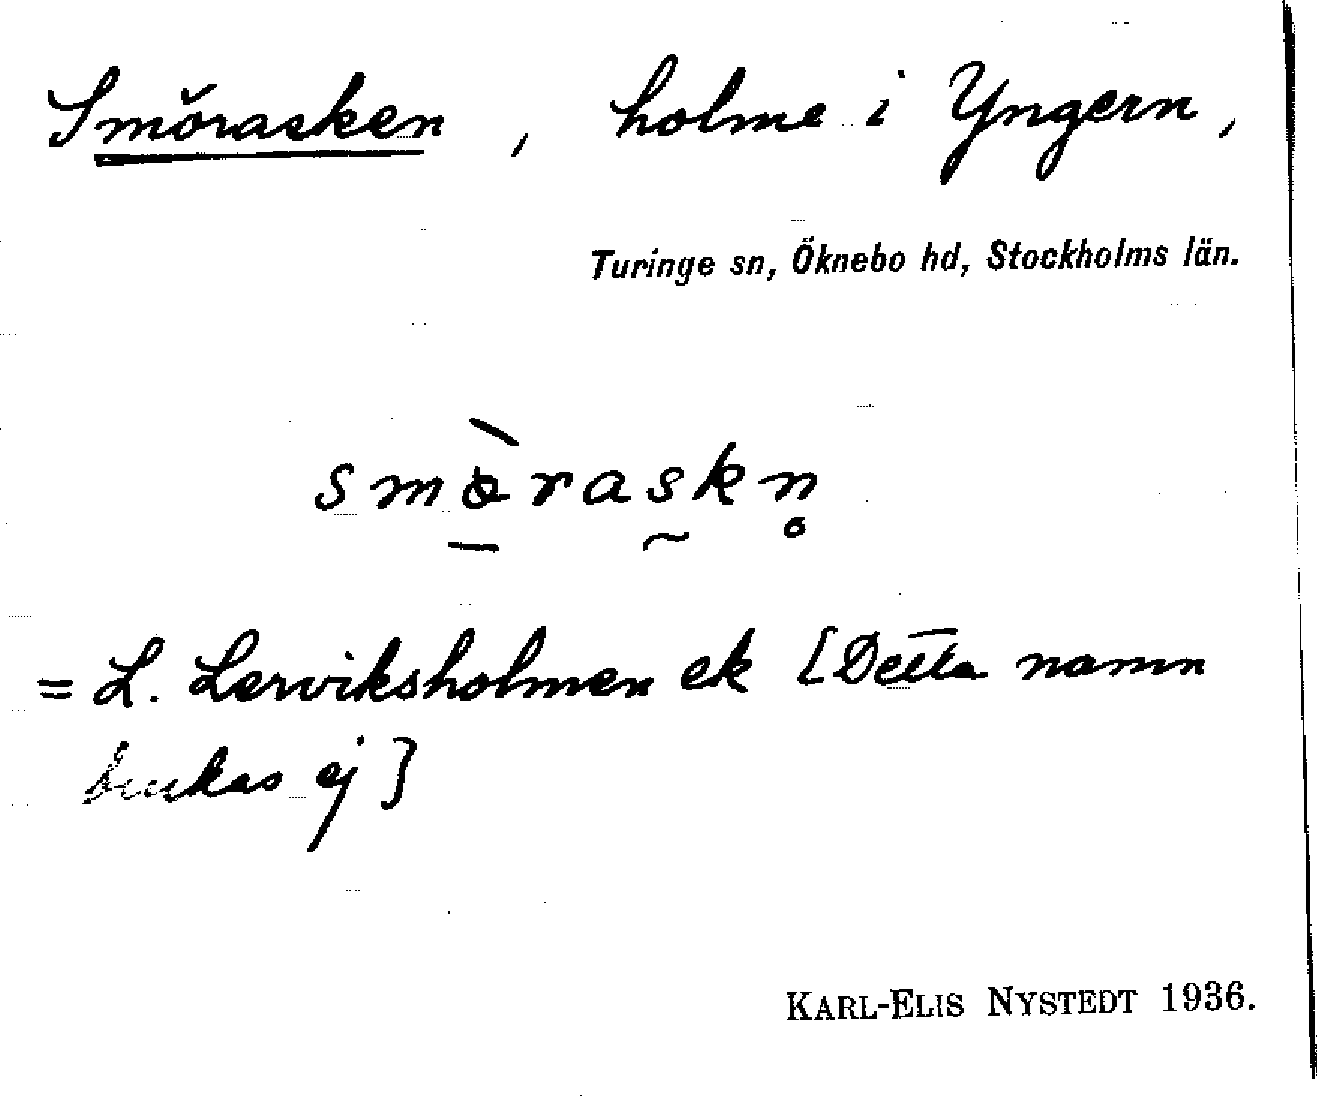 Smörasken, holme i Yngern,
Turinge sn, Öknebo hd, Stockholms län.
smö̀raskn̥
= L. Lerviksholmen ek [Detta namn
brukas ej]
KARL-ELIS NYSTEDT 1936.